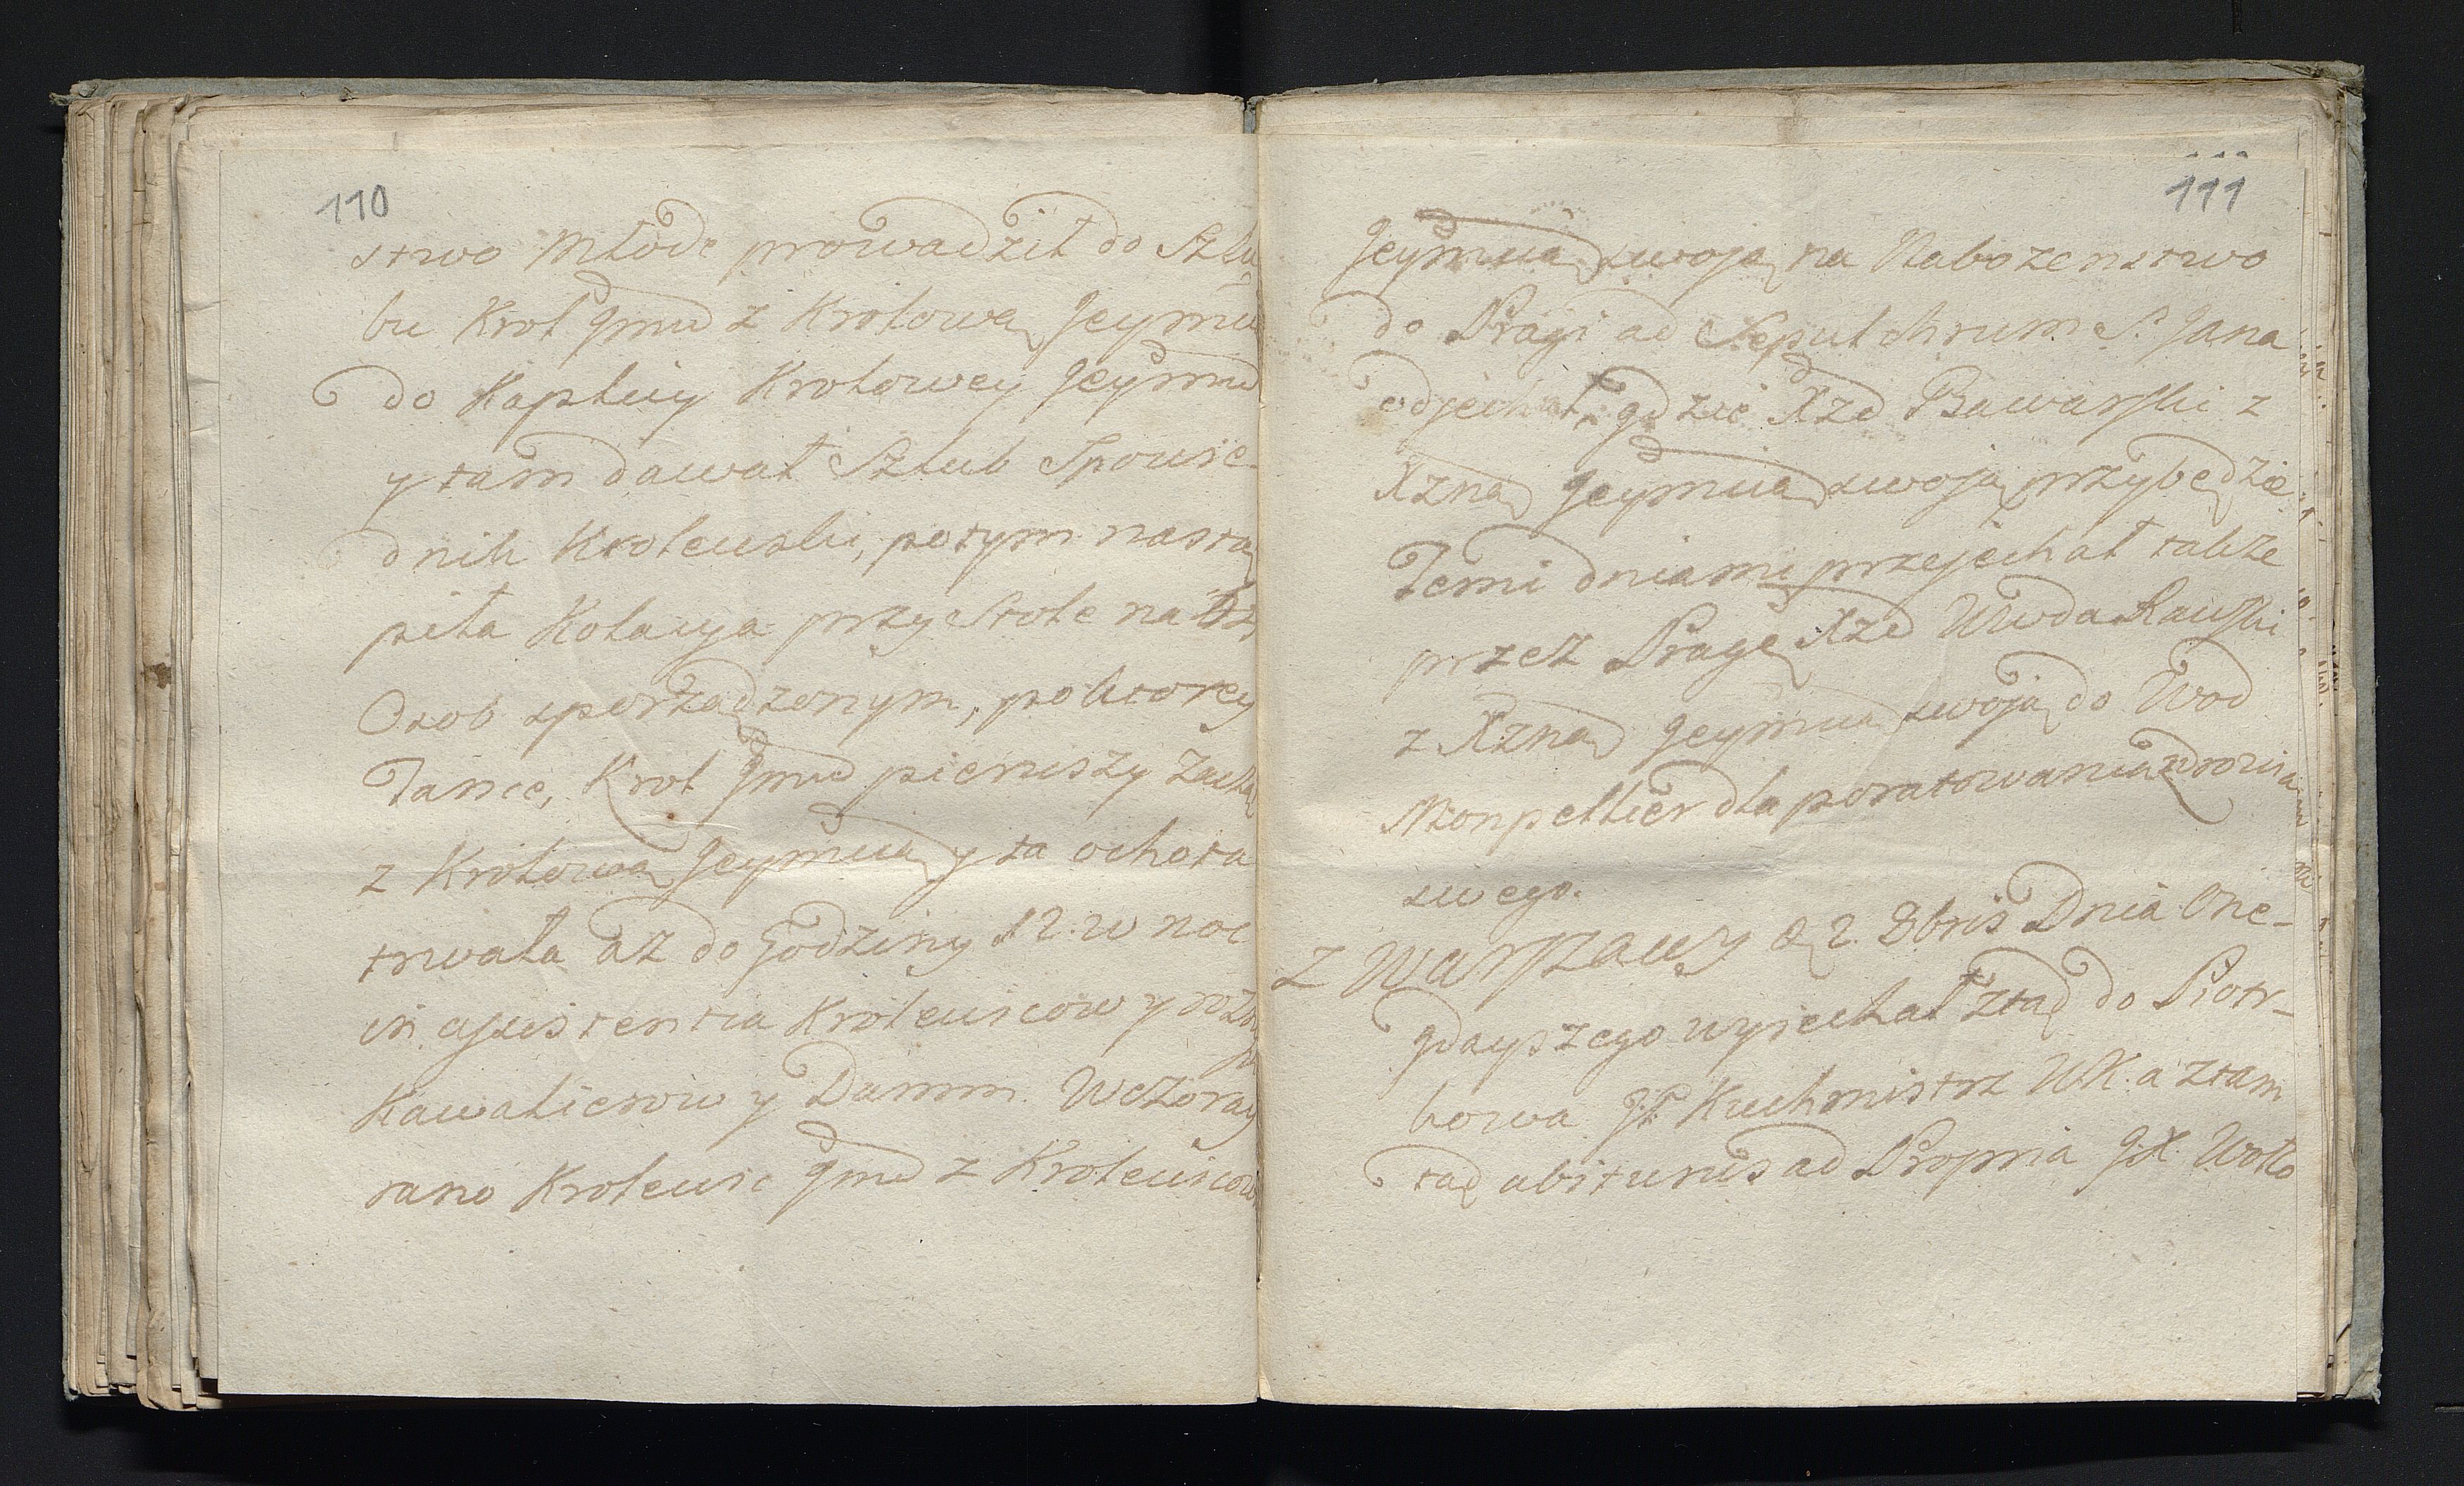 110
stwo Młode prowadził do Szlu
bu Krol Jmc z Krolową Jeymc
do Kaplicy Krolowey Jeymc
y tam dawał Szlub Spowie-
dnik Krolewski, potym nastą
piła Kolacya przy Stole na
Osob zporządzonym, po ktorey
Tance, Krol Jmc pierwszy zaczął
z Krolową Jeymcią y ta ochota
trwała az do Godziny 12. w noc
in assistentia Krolewicow y
Kawalierow y Damm. Wczoray
rano Krolewic Jmc z Krolewicow
111
Jeymcią swoją na Nabozenstwo
do Pragi ad Sepulchrum S. Jana
odjechał, gdzie Xze Bawarski z
Xzną Jeymcią swoją przybędzie.
Temi dniami przejechał takze
przez Pragę Xze Wwda Rawski
z Xzną Jeymcią swoją do Wod
Monpellier dla poratowania zdrowia
swego.
Z Warszawy d 2. 8bris Dnia One-
gdayszego wyjechał ztąd do Piotr-
kowa JP Kuchmistrz WK. a ztam
tąd abiturus ad Propria JX. Wotto